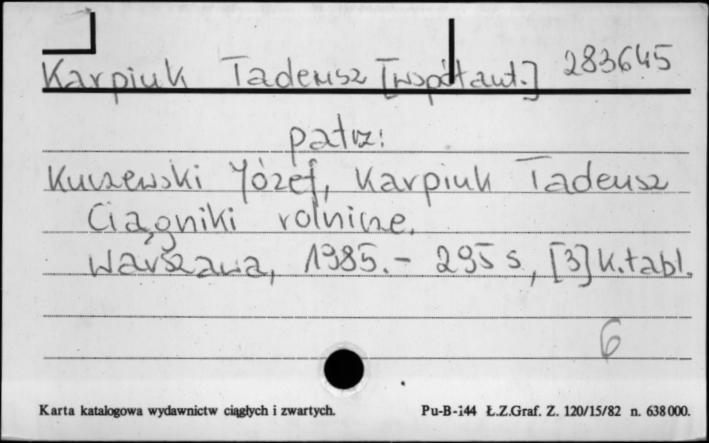 Karpiuk Tadeusz [współaut.] 283645
patrz:
Kuczewski Józef, Karpiuk Tadeusz
Ciągniki rolnicze.
Warszawa, 1985. - 295 s, [3] k. tabl.
6
Karta katalogowa wydawnictw ciągłych i zwartych. Pu-B-144 Ł.Z.Graf. Z. 120/15/82 n. 638 000.